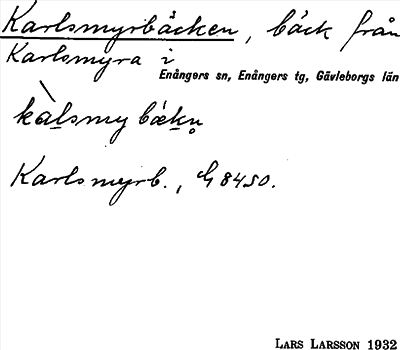 Karlsmyrbäcken, bäck från
Karlsmyra i
Enångers sn, Enångers tg, Gävleborgs län
kàl̲smybæ̀k̲n̥
Karlsmyrb., G 8450.
LARS LARSSON 1932